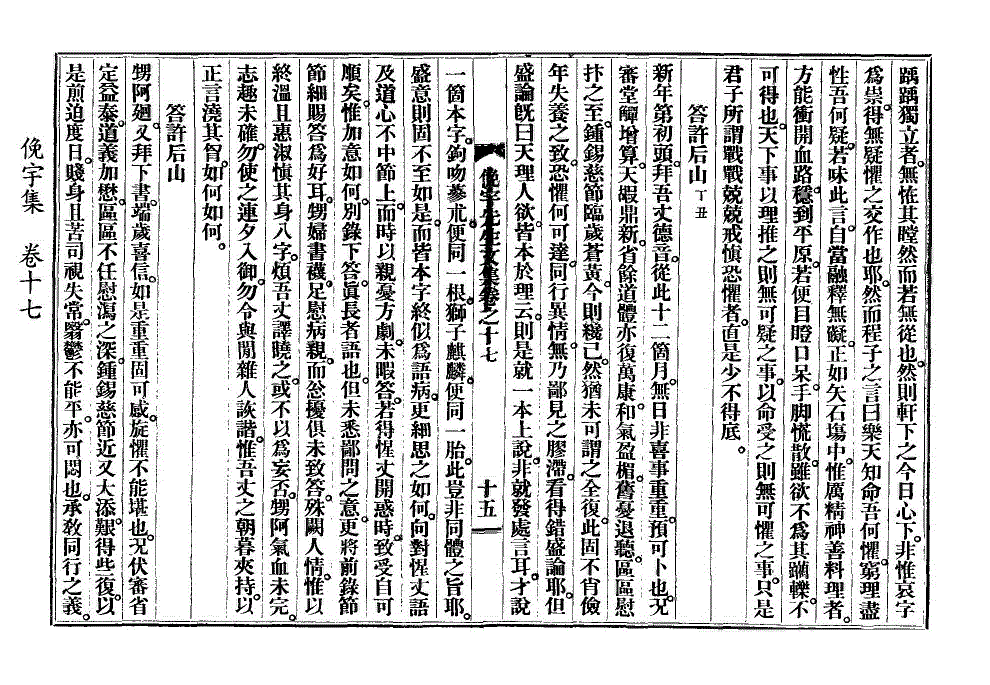 踽踽獨立者。無恠其瞠然而若無從也。然則軒下之今日心下。非惟哀字
爲祟。得無疑懼之交作也耶。然而程子之言曰樂天知命吾何懼。窮理盡
性吾何疑。若味此言。自當融釋無礙。正如矢石塲中。惟厲精神善料理者。
方能衝開血路。穩到平原。若便目瞪口呆手脚慌散。雖欲不爲其躪轢。不
可得也。天下事以理推之則無可疑之事。以命受之則無可懼之事。只是
君子所謂戰戰兢兢戒愼恐懼者。直是少不得底。
答許后山 丁丑
新年第初頭。拜吾丈德音。從此十二箇月。無日非喜事重重。預可卜也。旡
審堂韡增算。天嘏鼎新。省餘道體亦復萬康。和氣盈楣。舊憂退聽。區區慰
抃之至。鍾錫慈節臨歲蒼黃。今則纔已。然猶未可謂之全復。此固不肖儉
年失養之致。恐懼何可達。同行異情。無乃鄙見之膠滯。看得錯盛論耶。但
盛論旣曰天理人欲。皆本於理云。則是就一本上說。非就發處言耳。才說
一箇本字。鉤吻蔘朮。便同一根。獅子麒麟。便同一胎。此豈非同體之旨耶。
盛意則固不至如是。而皆本字終似爲語病。更細思之如何。向對惺丈語
及道心不中節上。而時以親憂方劇。未暇答。若得惺丈開惑時。致受自可
順矣。惟加意如何。別錄下答。眞長者語也。但未悉鄙問之意。更將前錄節
節細賜答爲好耳。甥婦書襪。足慰病親。而忿擾俱未致答。殊闕人情。惟以
終溫且惠淑愼其身八字。煩吾丈譯曉之。或不以爲妄否。甥阿氣血未完。
志趣未確。勿使之連夕入御。勿令與閒雜人詼諧。惟吾丈之朝暮夾持。以
正言澆其胷。如何如何。
答許后山
甥阿廻。又拜下書。端歲喜信。如是重重。固可感。旋懼不能堪也。旡伏審省
定益泰。道義加懋。區區不任慰瀉之深。鍾錫慈節近又大添。艱得些復。以
是煎迫度日。賤身且苦司視失常。翳鬱不能平。亦可悶也。承敎同行之義。
俛宇先生文集卷之十七
十五
俛宇集 卷十七